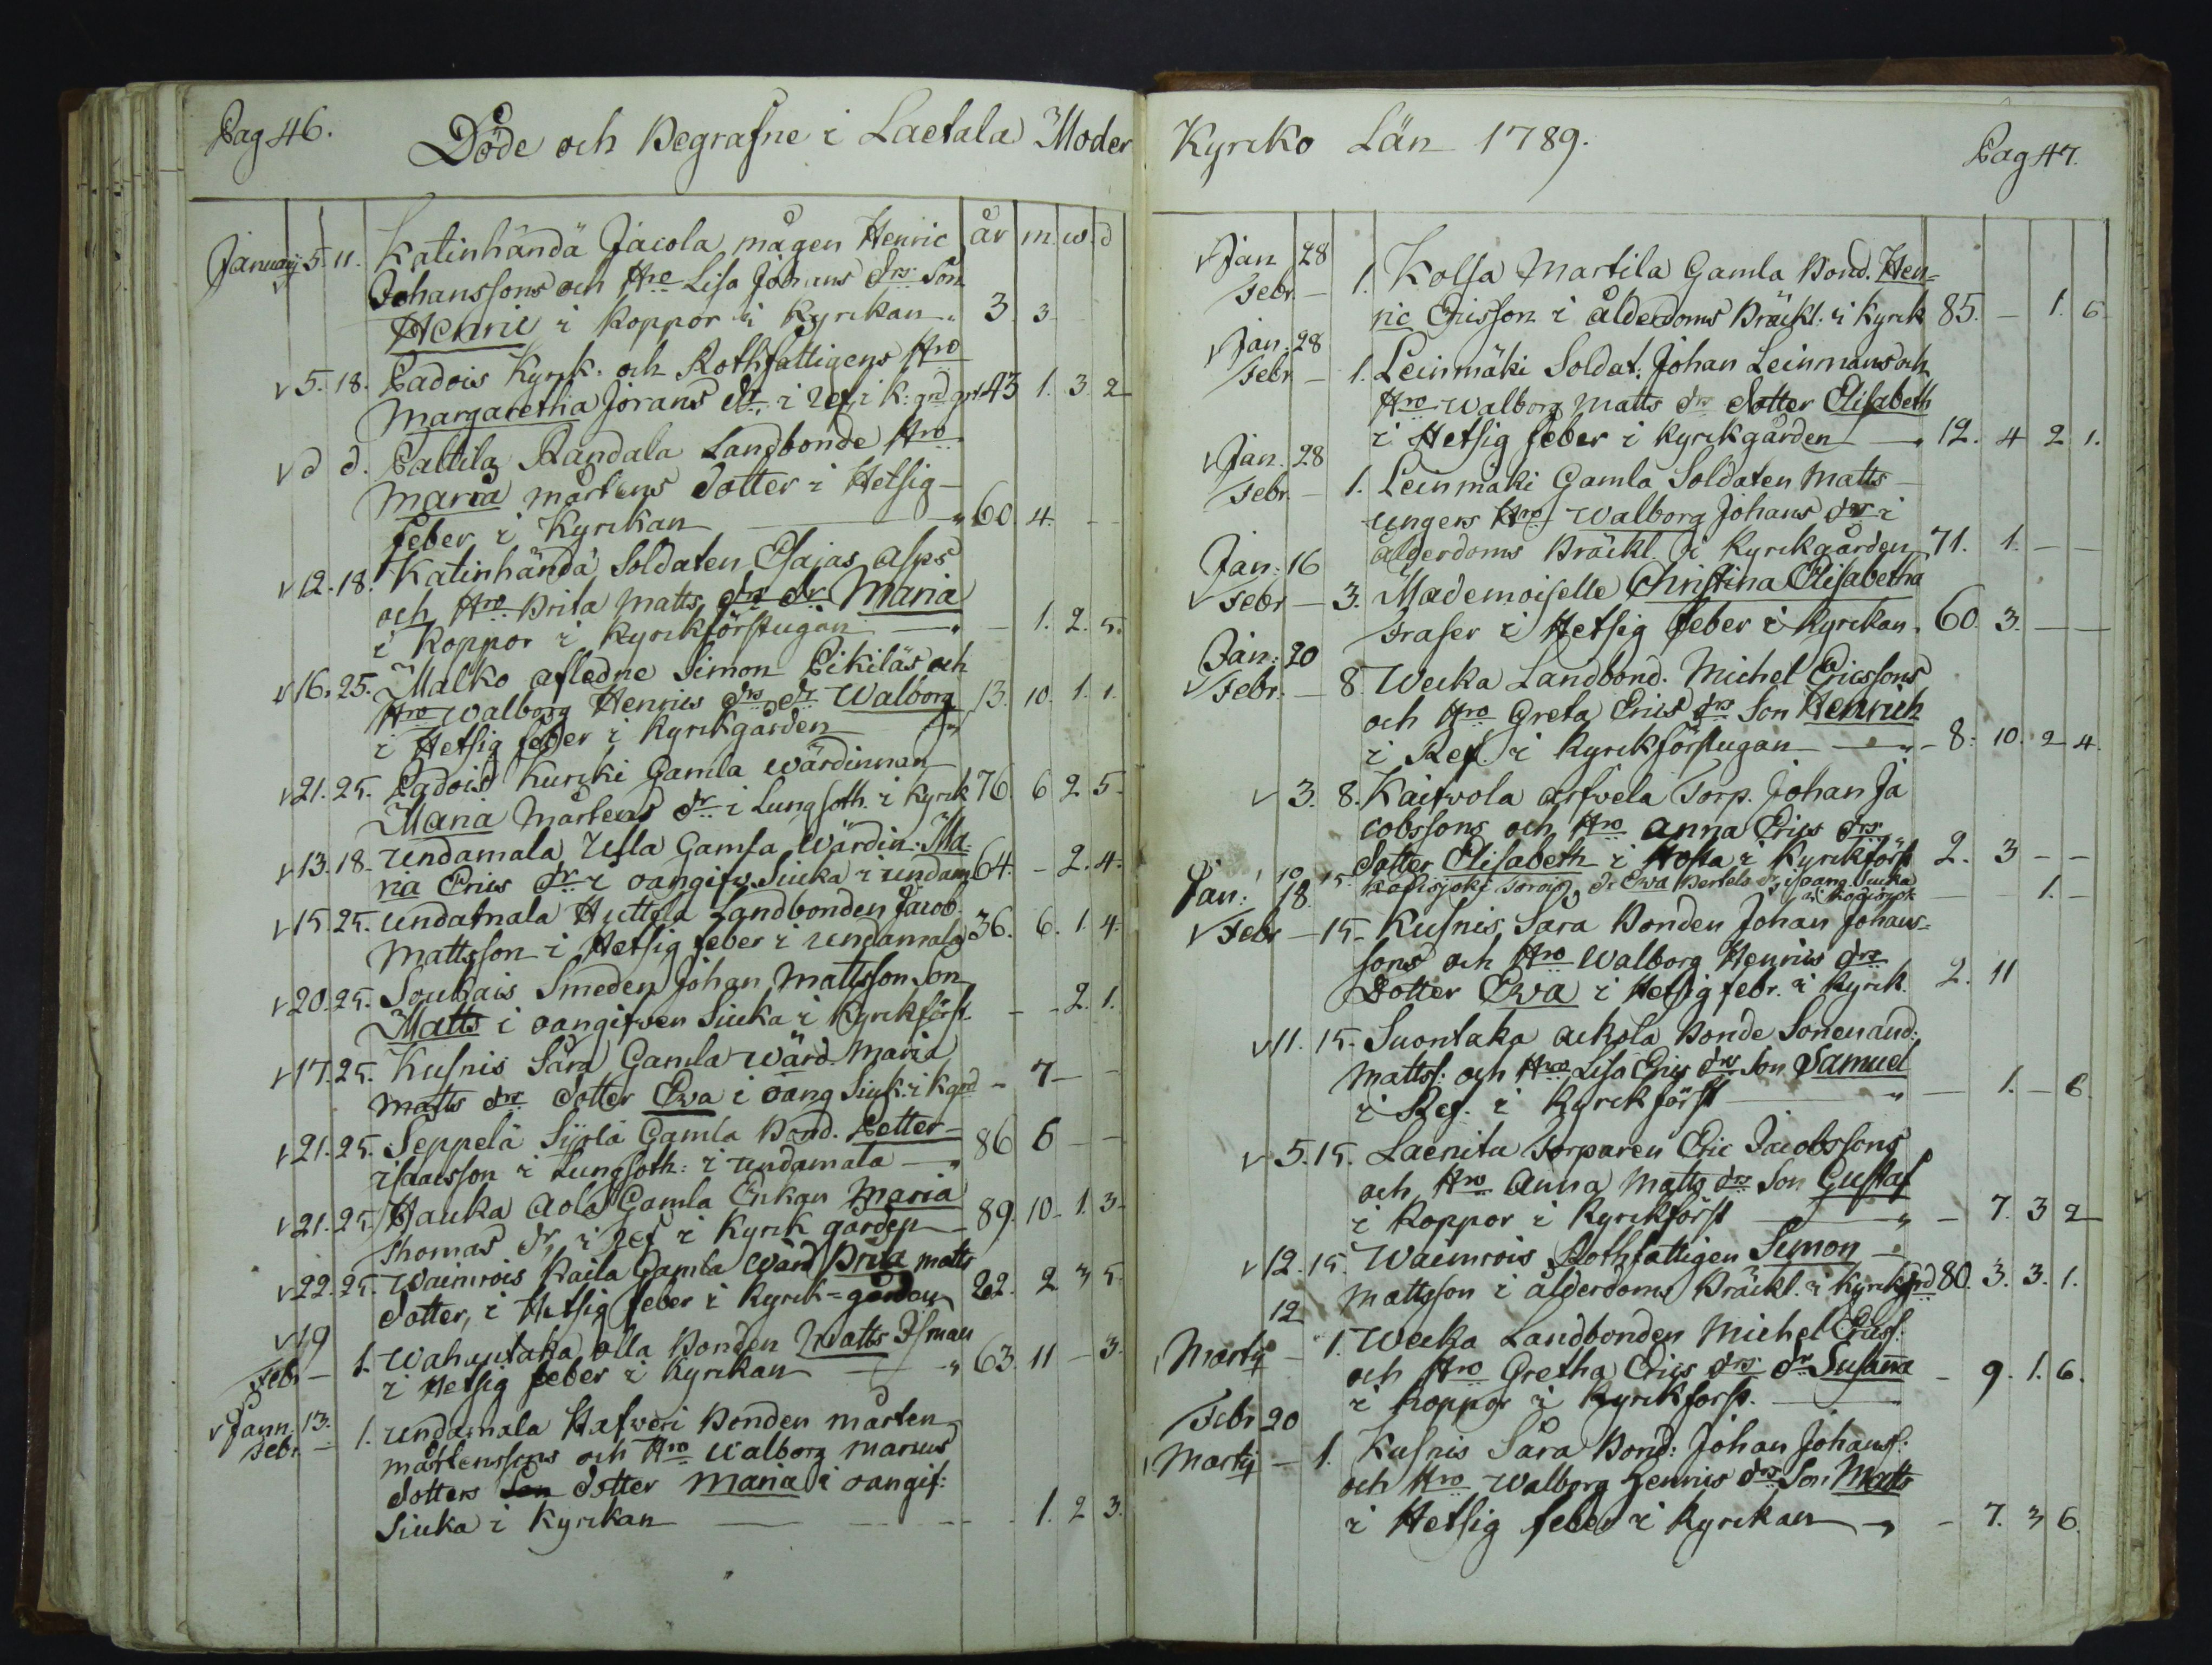 Pag 46.
Döde och Begrafne i Laetala Moder
år m. w. d
Januarij 5. 11. Katinhändä Jacola mågen Henric
Johanssons och Hro Lisa Johans drs Son
Henric i Koppor i Kyrckan 3. 3
5. 18. Padois Kyrck. och Rothfattigens Hro
Margaretha Jörans dr. i Ref. i K: grd 43 1. 3. 2
d d. Palttila Randala Landbonde Hro
Maria Mårtens dotter i Hetsig
feber, i Kyrckan 60. 4.
12. 18. Katinhändä Soldaten Esajas Alps
och Hro Brita Matts drs dr Maria
i Koppor i Kyrckförstugan - 1. 2. 5.
16. 25. Malko afledne Simon Eikiläs och
Hro Walborg Henrics drs dr Walborg 13. 10. 1. 1.
i Hetsig feber i Kyrckgården
21. 25. Padois Kurcki Gamla Wärdinnan
Maria Mårtens dr i Lungsoth i Kyrck 76. 6 2 5.
13. 18. Undamala Ulla Gamla Wärdin: Ma=
ria Erics dr i oangifv. Siuka i undam. 64. - 2. 4.
15. 25. Undamala Huttala Landbonden Jacob
Mattsson i Hetsig feber i undamala 36. 6. 1. 4.
20. 25. Soukais Smeden Johan Mattsson Son
Matts i oangifven Siuka i Kyrckförst. - - 2. 1.
17. 25. Kusnis Sara Gamla Wärd. Maria
Matts drs dotter Ewa i oang Siuk. i K grd - 7 - -
21. 25. Seppelä Sijrlä Gamla Bond. Petter
Isaacsson i Lungsoth: i undamala 86 6 - -
21. 25. Hauka Aola Gamla Enkan Maria
Thomas dr, i Ref i Kyrck gården 89. 10. 1. 3.
22. 25. Waimrois Kaila Gamla Wärd Brita Matts
dotter, i Hetsig feber i Kyrck=gården 22. 2 3 5.
19
Febr - 1. Wahantaka olla Bonden Matts Isman
i Hetsig feber i Kyrckan 63. 11 - 3.
Jann. 13.
Febr. - 1. Undamala Hafweri Bonden Mårten
Mårtenssons och Hro Walborg Marcus
dotters Son dotter Maria i oangif:
Siuka i Kyrckan - 1. 2 3.
Kyrcko Län 1789.
Pag 47.
Jan 28
Febr. - 1. Kolsa Martila Gamla Bond. Hen=
ric Ericsson i ålderdoms Bräckl: i Kyrck 85. - 1. 6
Jan. 28
Febr - 1. Leinmäki Soldat. Johan Leinmans och
Hro Walborg Matts drs dotter Elisabeth
i Hetsig feber i Kyrckgården 12. 4 2 1.
Jan. 28
Febr. - 1. Leinmäki Gamla Soldaten Matts
ungers Hro Walborg Johans drs i
ålderdoms Bräckl. i Kyrckgården 71. 1. - -
Jan: 16
Febr - 3. Mademoiselle Christina Elisabetha
Fraser i Hetsig feber i Kyrckan. 60. 3. - -
Jan: 20
Febr. - 8. Wecka Landbond. Michel Ericssons
och Hro Greta Erics drs Son Henrich
i Ref. i Kyrckförstugan - 8. 10. 2 4.
3. 8. Kaitwola Arfvela Torp. Johan Ja
cobssons och Hro Anna Erics drs
dotter Elisabeth i Hosta i Kyrckförst 2. 3 - -
10 15. Kodisjoki dr Ewa Bertels dr, i oang. Siuka - 1. -
Jan: 18.
Febr - 15. Kusnis Sara Bonden Johan Johans=
sons och Hro Walborg Henrics drs
Dotter Ewa i Hetsig febr. i Kyrck. 2. 11
11. 15. Suontaka Bonde Sonen And:
Matts: och Hro Lisa Erics drs Son Samuel
i Ref. i Kyrckförst - 1. - 6.
5. 15. Laenitu Torparen Eric Jacobssons
och Hro Anna Matts drs Son Gustaf
i Koppor i Kyrckförst - 7. 3 2
12. 15. Waimrois Rothfattigen Simon
Mattsson i ålderdoms Bräckl. i Kyrckgrd 80. 3. 3. 1.
12
Martij - 1. Wecka Landbonden Michel Erics:
och Hro Gretha Erics drs dr Susanna - 9. 1. 6.
i Koppor i Kyrckförst.
Febr 20
Martij - 1. Kusnis Sara Bond: Johan Johans:
och Hro Walborg Henrics drs Son Matts
i Hetsig feber i Kyrckan - 7. 3 6.